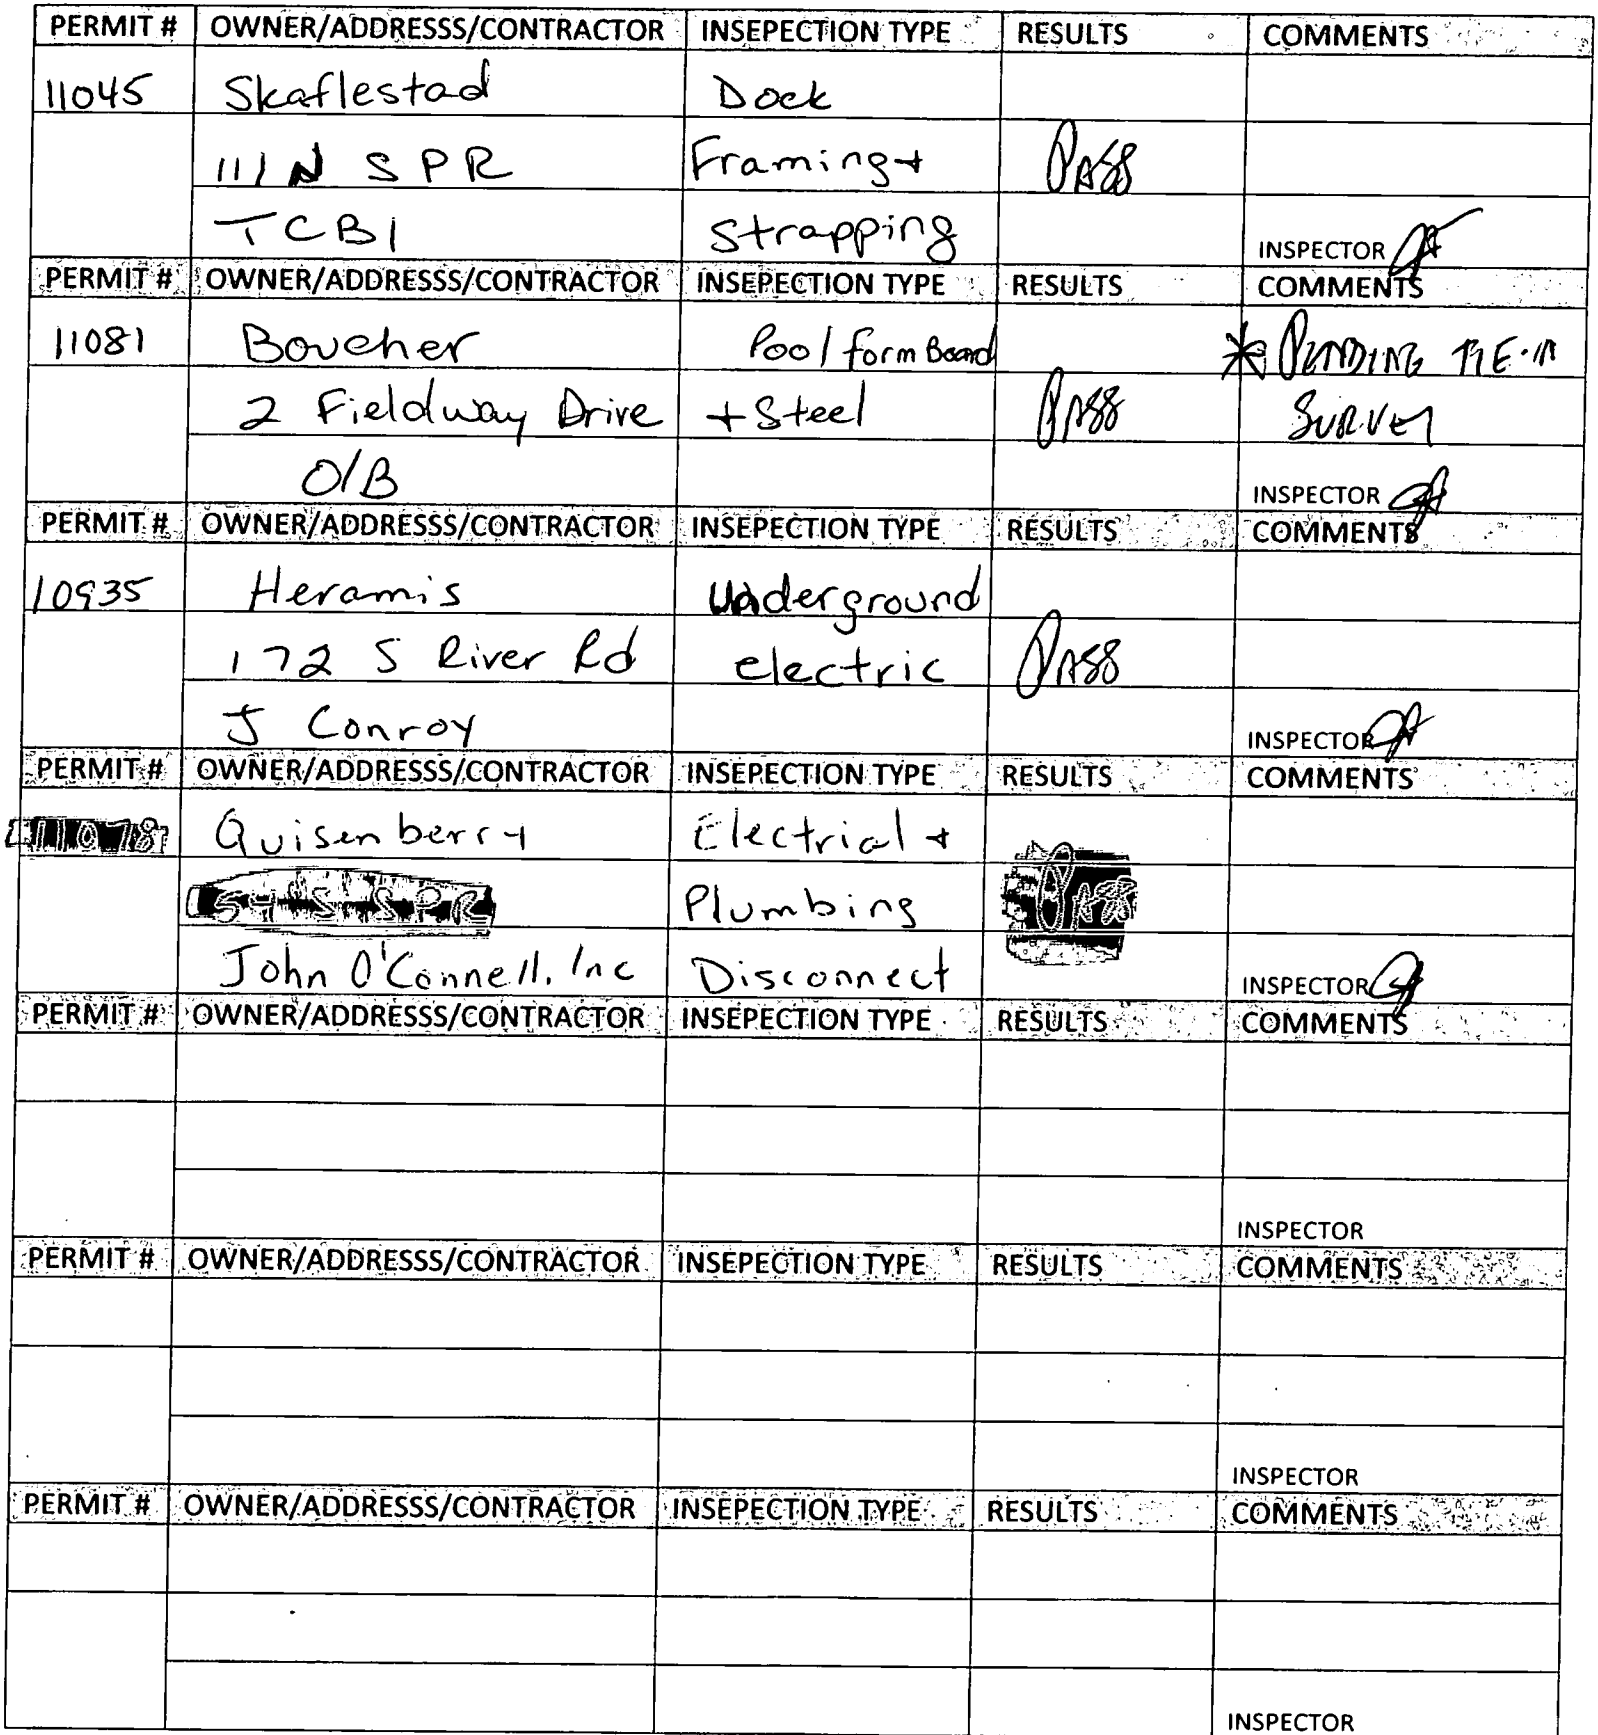 PERMIT # OWNER/ADDRESSS/CONTRACTOR INSEPECTION TYPE RESULTS COMMENTS
11045 Skaflestad Dock
111 N SPR Framing + PASS
TCBI Strapping INSPECTOR
PERMIT # OWNER/ADDRESSS/CONTRACTOR INSEPECTION TYPE RESULTS COMMENTS
11081 Boucher Pool form Board * PENDING TIE-IN
2 Fieldway Drive + Steel PASS SURVEY
O/B INSPECTOR
PERMIT # OWNER/ADDRESSS/CONTRACTOR INSEPECTION TYPE RESULTS COMMENTS
10935 Heramis Underground
172 S River Rd electric PASS
J Conroy INSPECTOR
PERMIT # OWNER/ADDRESSS/CONTRACTOR INSEPECTION TYPE RESULTS COMMENTS
11078 Quisenberry Electrial +
54 S. SPR Plumbing PASS
John O'Connell, Inc Disconnect INSPECTOR
PERMIT # OWNER/ADDRESSS/CONTRACTOR INSEPECTION TYPE RESULTS COMMENTS
INSPECTOR
PERMIT # OWNER/ADDRESSS/CONTRACTOR INSEPECTION TYPE RESULTS COMMENTS
INSPECTOR
PERMIT # OWNER/ADDRESSS/CONTRACTOR INSEPECTION TYPE RESULTS COMMENTS
INSPECTOR